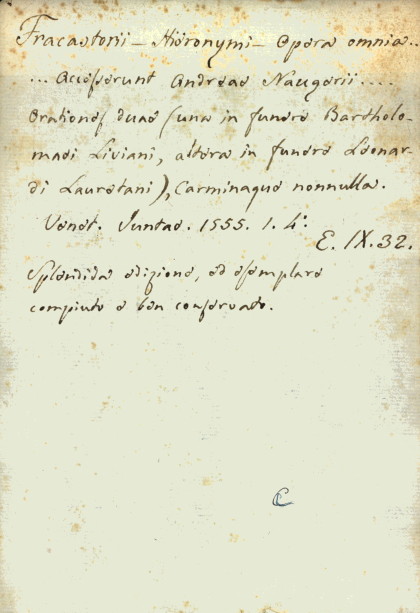 Fracastorii - Hieronymi - Opera omnia..
... accesserunt Andreae Naugerii ....
Orationes duae (una in funere Bartholo-
maei Liviani, altera in funere Leonar-
di Lauretani), Carminaque nonnulla.
Venet. Juntae. 1555. 1. 4°.
E. IX. 32.
Splendida edizione, ed esemplare
compiuto e ben conservato.
C